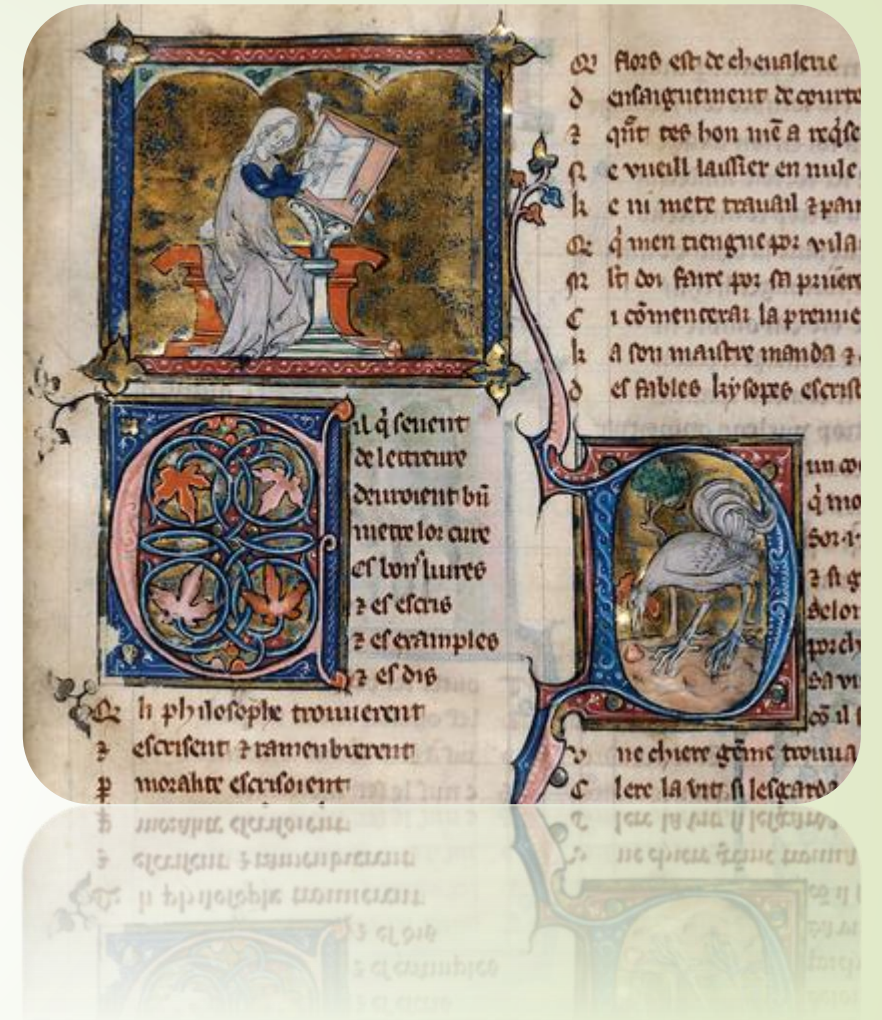 Cil q̇ seuent
de lettreure
deuroient bn̄
mettre lor cure
es bons liures
⁊ es escris
⁊ es examples
⁊ es dis
Q li philosophe trouuerent
⁊ escrisent ⁊ ramenbrerent
P moralite escrisoient
Q flors est de cheualerie
d ensaignement de courto
⁊ qn̄t tes hon mē a reqise
N e vueill laissier en nule
k e ni mete trauail ⁊ pain
Q q̇ men tiengne por vila
M lt doi faire por sa pruere
C i cōmencerai la premie
k a son maistre manda ⁊
d es fables kysopes escrist
Dun co
q̇ mo
Sor .i.
⁊ si g
Selon
por ch
sa vi
cō il s
v ne chiere gēme trouua
C lere la vit si lesgarda